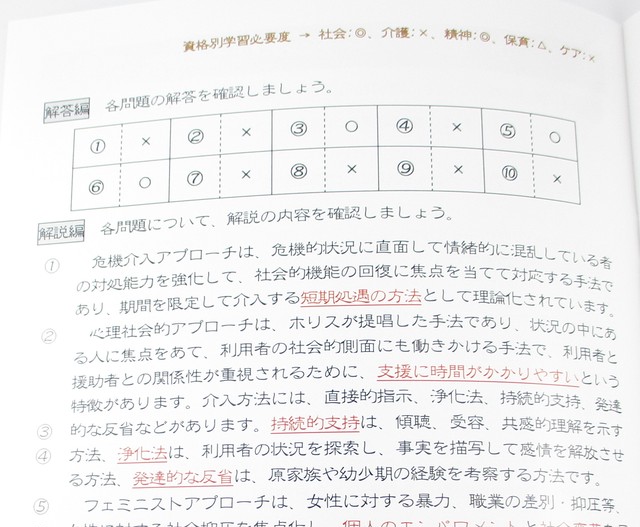 資格別学習必要度 → 社会:◎、介護:×、精神:◎、保育:△、ケア:×
解答編 各問題の解答を確認しましょう。
① × ② × ③ ○ ④ × ⑤ ○
⑥ ○ ⑦ × ⑧ × ⑨ × ⑩ ×
解説編 各問題について、解説の内容を確認しましょう。
① 危機介入アプローチは、危機的状況に直面して情緒的に混乱している者
の対処能力を強化して、社会的機能の回復に焦点を当てて対応する手法で
あり、期間を限定して介入する短期処遇の方法として理論化されています。
② 心理社会的アプローチは、ホリスが提唱した手法であり、状況の中にあ
る人に焦点をあて、利用者の社会的側面にも働きかける手法で、利用者と
援助者との関係性が重視されるために、支援に時間がかかりやすいという
特徴があります。介入方法には、直接的指示、浄化法、持続的支持、発達
③ 的な反省などがあります。持続的支持は、傾聴、受容、共感的理解を示す
④ 方法、浄化法は、利用者の状況を探索し、事実を描写して感情を解放させ
る方法、発達的な反省は、原家族や幼少期の経験を考察する方法です。
⑤ フェミニストアプローチは、女性に対する暴力、職業の差別・抑圧等、